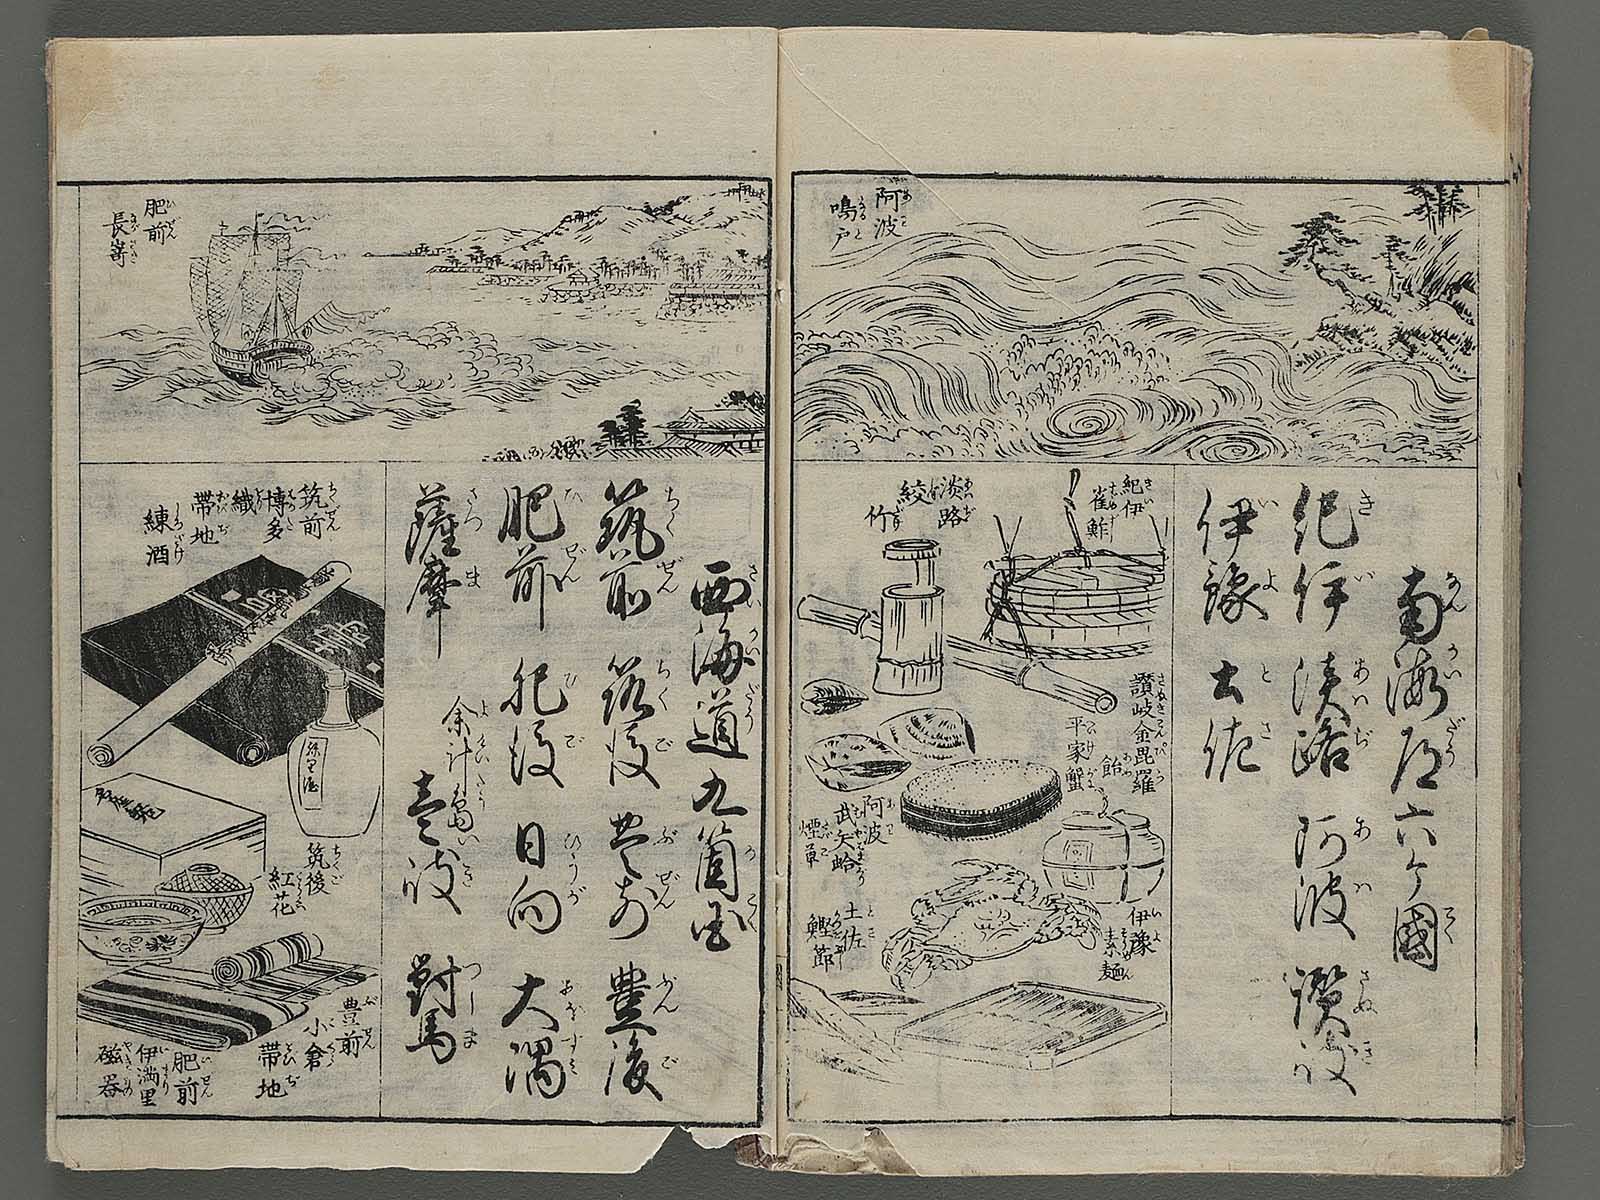 阿波
鳴戸
南海道六ケ國
紀伊 淡路 阿波 讃岐
伊豫 土佐
紀伊
雀鮓
淡路
絞竹
讃岐金毘羅
飴
平家蟹
阿波
武矢蛤
煙草
伊豫
素麺
土佐
鰹節
肥前
長嵜
西海道九箇国
筑前 筑後 豊前 豊後
肥前 肥後 日向 大隅
薩摩
余計島
壱岐 對馬
筑前
博多
織
帯地
練酒
筑後
紅花
豊前
小倉
帯地
肥前
伊満里
磁器